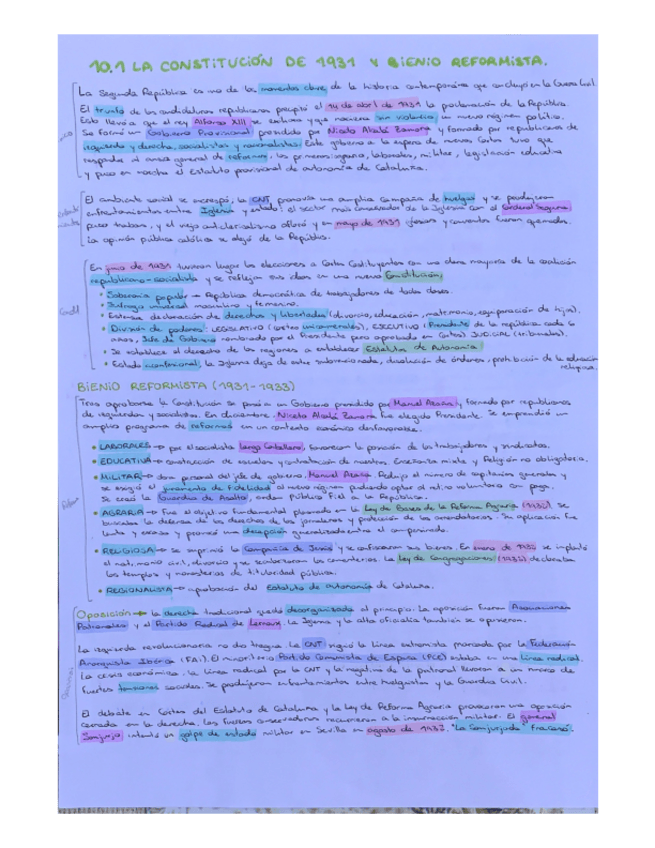 10.1 LA CONSTITUCIÓN DE 1931 Y BIENIO REFORMISTA.
La Segunda República es uno de los momentos clave de la historia contemporánea que concluyó en la Guerra Civil.
El triunfo de las candidaturas republicanas precipitó el 14 de abril de 1931 la proclamación de la República.
Esto llevó a que el rey Alfonso XIII se exiliara y que naciera sin violencia un nuevo régimen político.
Se formó un Gobierno Provisional presidido por Niceto Alcalá Zamora y formado por republicanos de
izquierda y derecha, socialistas y nacionalistas. Este gobierno a la espera de nuevas Cortes tuvo que
responder al ansia general de reformas, las primeras: agraria, laborales, militar, legislación educativa
y puso en marcha el Estatuto provisional de autonomía de Cataluña.
El ambiente social se encrespó, la CNT promovió una amplia campaña de huelgas y se produjeron
enfrentamientos entre Iglesia y estado: el sector más conservador de la Iglesia con el Cardenal Segura,
puso trabas, y el viejo anticlericalismo afloró y en mayo de 1931 iglesias y conventos fueron quemados.
La opinión pública católica se alejó de la República.
En junio de 1931 tuvieron lugar las elecciones a Cortes Constituyentes con una clara mayoría de la coalición
republicano-socialista y se reflejan sus ideas en una nueva Constitución;
• Soberanía popular → República democrática de trabajadores de todas clases.
• Sufragio universal masculino y femenino.
• Extensa declaración de derechos y libertades (divorcio, educación, matrimonio, equiparación de hijos).
• División de poderes: LEGISLATIVO (Cortes unicamerales), EJECUTIVO (Presidente de la república cada 6
años, Jefe de Gobierno nombrado por el Presidente pero aprobado en Cortes) JUDICIAL (tribunales).
• Se establece el derecho de las regiones a establecer Estatutos de Autonomía.
• Estado aconfesional: la Iglesia deja de estar subvencionada, disolución de órdenes, prohibición de la educación
religiosa.
BIENIO REFORMISTA (1931-1933)
Tras aprobarse la Constitución se formó un Gobierno presidido por Manuel Azaña, formado por republicanos
de izquierdas y socialistas. En diciembre, Niceto Alcalá Zamora fue elegido Presidente. Se emprendió un
amplio programa de reformas en un contexto económico desfavorable.
• LABORALES → por el socialista Largo Caballero, favorecen la posición de los trabajadores y sindicatos.
• EDUCATIVA → construcción de escuelas y contratación de maestros. Enseñanza mixta y Religión no obligatoria.
• MILITAR → obra personal del jefe de gobierno, Manuel Azaña. Redujo el número de capitanías generales y
se exigió el juramento de fidelidad al nuevo régimen pudiendo optar al retiro voluntario con paga.
Se creó la Guardia de Asalto, orden público fiel a la República.
• AGRARIA → Fue el objetivo fundamental plasmado en la Ley de Bases de la Reforma Agraria (1932). Se
buscaba la defensa de los derechos de los jornaleros y protección de los arrendatarios. Su aplicación fue
lenta y escasa y provocó una decepción generalizada entre el campesinado.
• RELIGIOSA → se suprimió la Compañía de Jesús y se confiscaron sus bienes. En enero de 1932 se implantó
el matrimonio civil, divorcio y se secularizaron los cementerios. La Ley de Congregaciones (1933) declaraba
los templos y monasterios de titularidad pública.
• REGIONALISTA → aprobación del Estatuto de autonomía de Cataluña.
Oposición → la derecha tradicional quedó desorganizada al principio. La oposición fueron Asociaciones
Patronales y el Partido Radical de Lerroux. La Iglesia y la alta oficialía también se opusieron.
La izquierda revolucionaria no dio tregua. La CNT siguió la línea extremista marcada por la Federación
Anarquista Ibérica (FAI). El minoritario Partido Comunista de España (PCE) estaba en una línea radical.
La crisis económica, la línea radical por la CNT y la negativa de la patronal llevaron a un marco de
fuertes tensiones sociales. Se produjeron enfrentamientos entre huelguistas y la Guardia Civil.
El debate en Cortes del Estatuto de Cataluña y la Ley de Reforma Agraria provocaron una oposición
cerrada en la derecha. Las fuerzas conservadoras recurrieron a la insurrección militar. El general
Sanjurjo intentó un golpe de estado militar en Sevilla en agosto de 1932. "La Sanjurjada" fracasó.